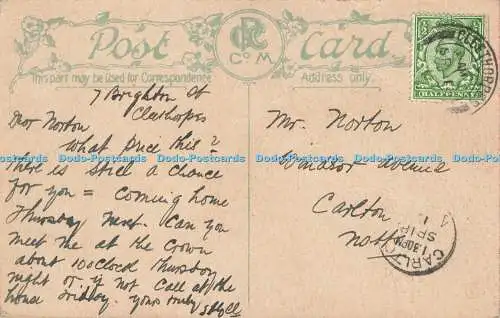 Post Card
CR
Co M
This part may be Used for Correspondence
Address only.
HALFPENNY
CLEETHORPES
7 Brighton St
Cleethorpes
Dear Norton
What price this?
There is still a chance
for you = Coming home
Thursday next. Can you
meet me at the Crown
about 10 o'clock Thursday
night or if not Call at the
house Friday. yours truly
Mr. Norton
Windsor Avenue
Carlton
Notts
CARLTON
1.30PM
Dodo-Postcards Dodo-Postcards Dodo-Postcards Dodo-Postcards Dodo-Postcards